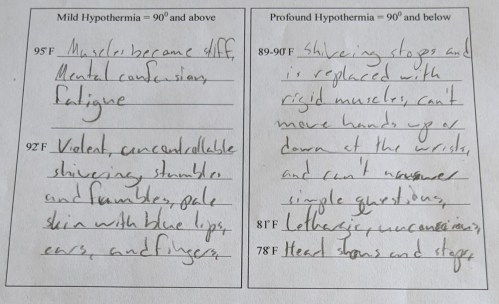 Mild Hypothermia = 90⁰ and above
95˚F Muscles become stiff,
Mental confusion,
fatigue
92˚F Violent, uncontrollable
shivering, stumbles
and fumbles, pale
skin with blue lips,
ears, and fingers,
Profound Hypothermia = 90⁰ and below
89-90˚F Shivering stops and
is replaced with
rigid muscles, can't
move hands up or
down at the wrists,
and can't answer
simple questions,
81˚F Lethargic,
78˚F Heart slows and stops,